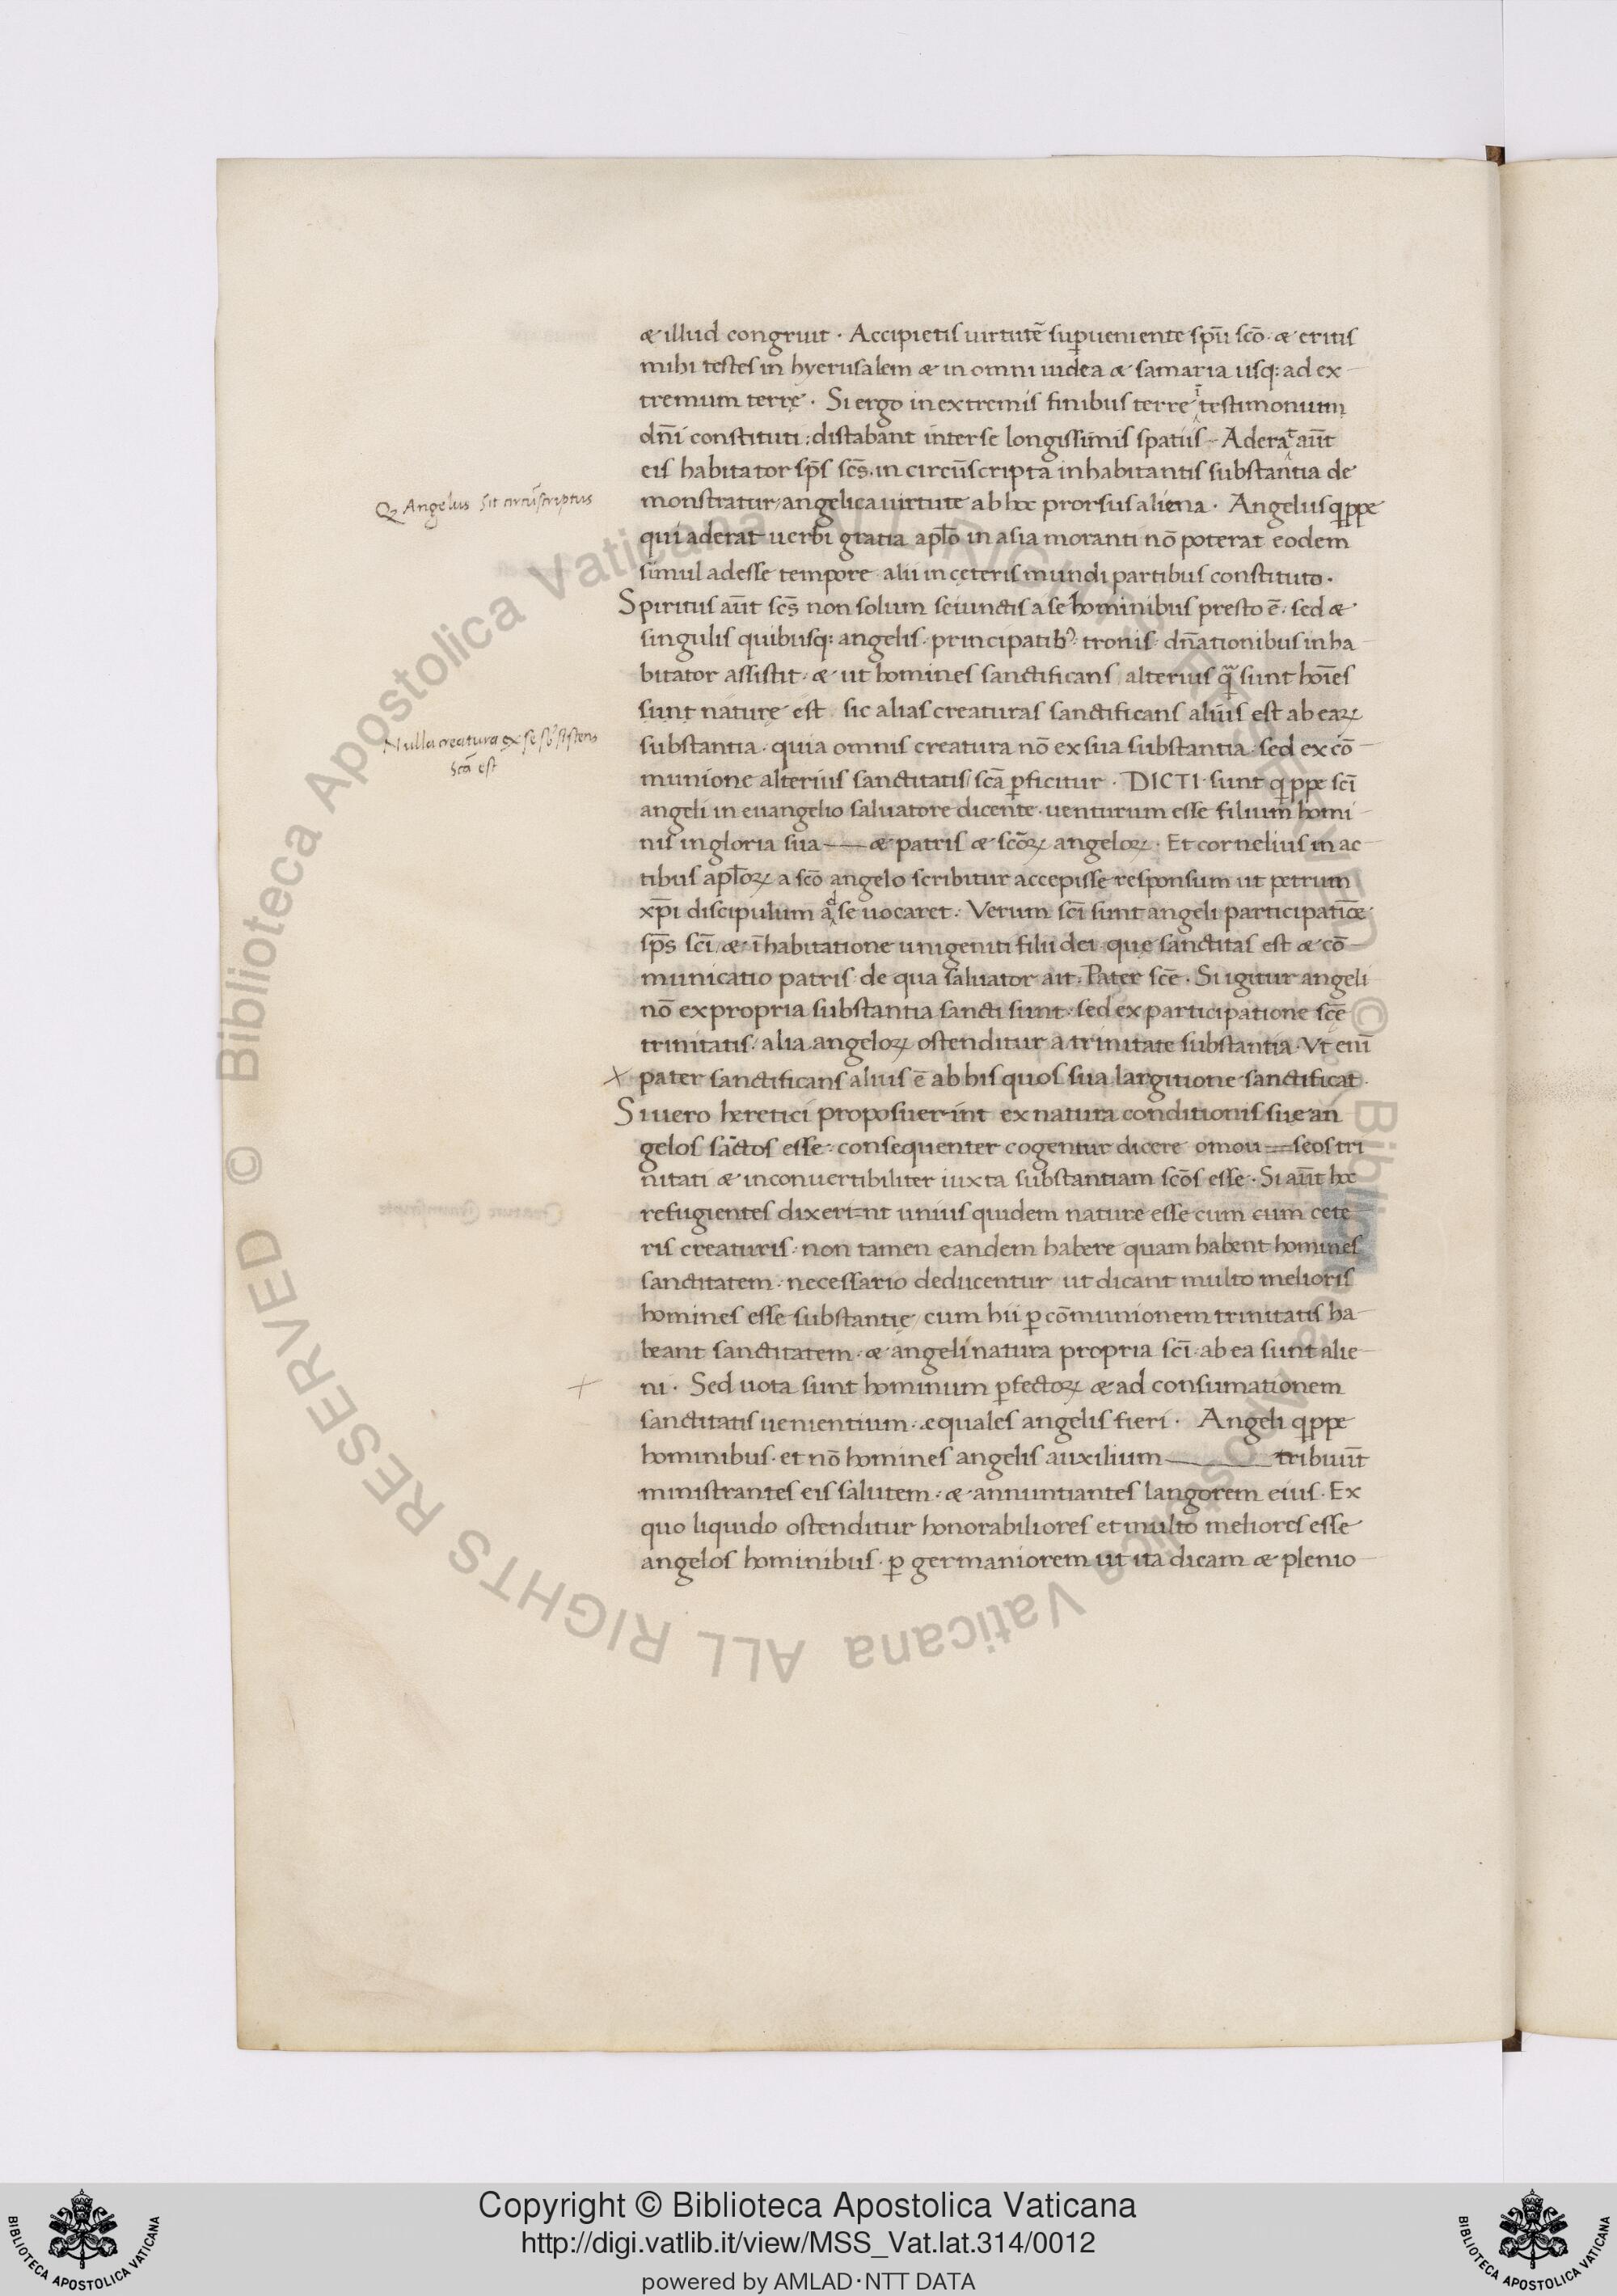 æ illud congruit · Accipietis uirtutē suꝑueniente spū scō · æ eritis
mihi testes in hyerusalem æ in omni iudea æ samaria usq: ad ex
tremum terrę · Si ergo in extremis finibus terre ī testimonium
dn̄i constituti : distabant inter se longissimis spatiis · Aderat aūt
eis habitator sp̄s sc̄s · in circūscripta inhabitantis substantia de
monstratur / angelica uirtute ab hoc prorsus aliena · Angelus qͥppe
Q Angelus sit circūscriptus
qui aderat uerbi gratia apl̄o in asia moranti nō poterat eodem
simul adesse tempore alii in ceteris mundi partibus constituto ·
Spiritus aūt sc̄s non solum seiunctis a se hominibus presto ē · sed æ
singulis quibusq: angelis · principatibꝰ · tronis · dn̄ationibus inha
bitator assistit · æ ut homines sanctificans / alterius qͣ sunt hoīes
sunt naturę est · sic alias creaturas sanctificans alius est ab eaꝝ
substantia · quia omnis creatura nō ex sua substantia · sed ex cō
Nulla creatura ex se sb̄sistens
scā est
munione alterius sanctitatis / scā ꝑficitur · DICTI sunt qͥppe scī
angeli in euangelio saluatore dicente · uenturum esse filium homi
nis in gloria sua æ patris æ scōꝝ angeloꝝ · Et cornelius in ac
tibus apl̄oꝝ a scō angelo scribitur accepisse responsum ut petrum
xp̄i discipulum ad se uocaret · Verum scī sunt angeli participatiōe
sp̄s scī · æ īhabitatione unigeniti filii dei · quę sanctitas est æ cō
municatio patris · de qua saluator ait : Pater scē · Si igitur angeli
nō ex propria substantia sancti sunt · sed ex participatione scē
trinitatis / alia angeloꝝ ostenditur a trinitate substantia · Vt enī
pater sanctificans alius ē ab his quos sua largitione sanctificat ·
Si uero heretici proposuerint ex natura conditionis sue an
gelos sāctos esse · consequenter cogentur dicere omou seos tri
nitati æ inconuertibiliter iuxta substantiam scōs esse · Si aūt hoc
refugientes dixerint unius quidem nature esse cum cum cete
ris creaturis · non tamen eandem habere quam habent homines
sanctitatem · necessario deducentur / ut dicant multo melioris
homines esse substantię / cum hii ꝑ cōmunionem trinitatis ha
beant sanctitatem · æ angeli natura propria scī · ab ea sunt alie
ni · Sed uota sunt hominum ꝑfectoꝝ æ ad consumationem
sanctitatis uenientium · æquales angelis fieri · Angeli qͥppe
hominibus · et nō homines angelis auxilium tribuūt
ministrantes eis salutem · æ annuntiantes langorem eius · Ex
quo liquido ostenditur honorabiliores et multo meliores esse
angelos hominibus · ꝑ germaniorem ut ita dicam æ plenio
© Biblioteca Apostolica Vaticana ALL RIGHTS RESERVED © Biblioteca Apostolica Vaticana ALL RIGHTS RESERVED
Copyright © Biblioteca Apostolica Vaticana
http://digi.vatlib.it/view/MSS_Vat.lat.314/0012
powered by AMLAD·NTT DATA
BIBLIOTECA APOSTOLICA VATICANA
BIBLIOTECA APOSTOLICA VATICANA